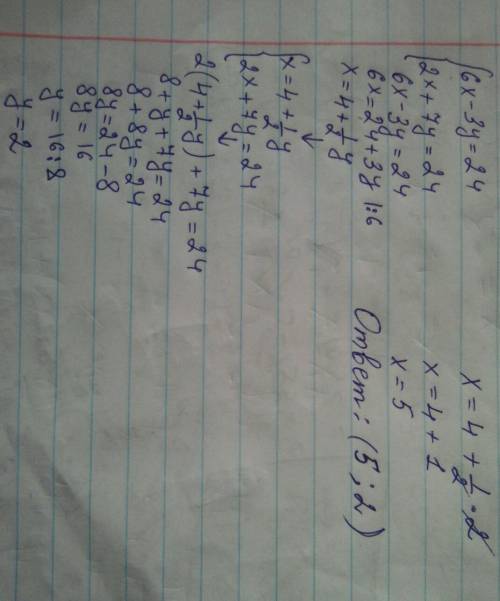 6x-3y=24
2x+7y=24
6x-3y=24
6x=24+3y |:6
x=4+1/2y
x=4+1/2y
2x+7y=24
2(4+1/2y)+7y=24
8+y+7y=24
8+8y=24
8y=24-8
8y=16
y=16:8
y=2
x=4+1/2·2
x=4+1
x=5
Ответ: (5;2)